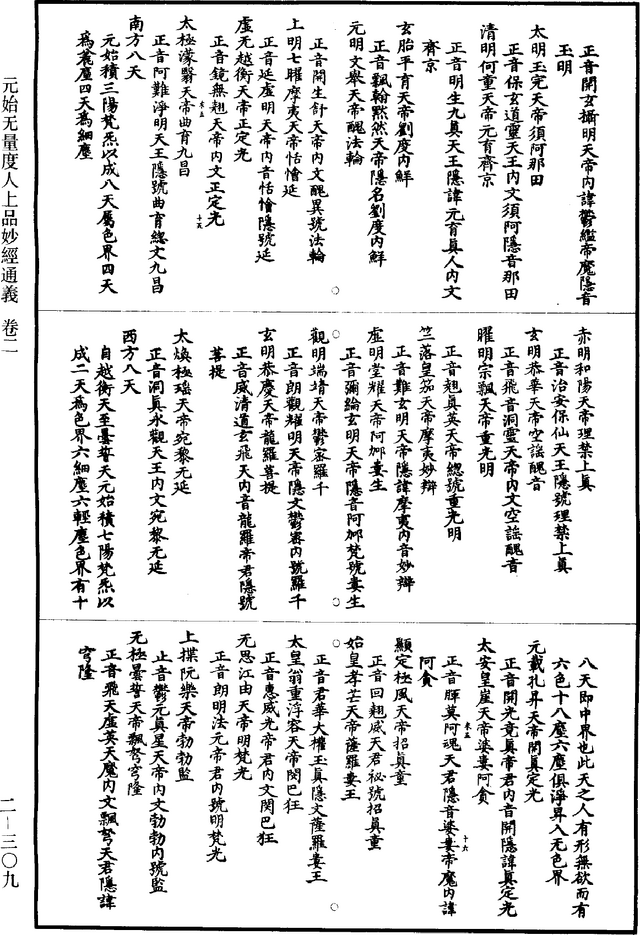 正音開玄攝明天帝內諱鬱繿帝魔隱音
玉明
太明玉完天帝須阿那田
正音保玄道靈天王內文須阿隱音那田
清明何重天帝元育齊京
正音明生九真天王隱諱元育真人內文
齊京
玄胎平育天帝劉度內鮮
正音飄輪黙然天帝隱名劉度內鮮
元明文舉天帝醜法輪
正音開生針天帝內文醜異號法輪
上明七曜摩夷天帝恬懀延
正音延虛明天帝內音恬懀隱號延
虛无越衡天帝正定光
正音鏡無翹天帝內文正定光
太極濛翳天帝曲育九昌
正音阿難淨明天王隱號曲育總文九昌
南方八天
元始積三陽梵炁以成八天屬色界四天
為麁塵四天為細塵
赤明和陽天帝理禁上真
正音治安保仙天王隱號理禁上真
玄明恭華天帝空謠醜音
正音飛音洞靈天帝內文空謠醜音
曜明宗飄天帝重光明
正音翹真英天帝總號重光明
竺落皇笳天帝摩夷妙辯
正音難玄明天帝隱諱摩夷內音妙辯
虛明堂耀天帝阿䢼婁生
正音彌綸玄明天帝隱音阿䢼梵號婁生
觀明端靖天帝鬱密羅千
正音朗觀耀明天帝隱文鬱密內號羅千
玄明恭慶天帝龍羅菩提
正音威清道玄飛天內音龍羅帝君隱號
菩提
太煥極瑤天帝宛黎无延
正音洞真永觀天王內文宛黎无延
西方八天
自越衡天至曇誓天元始積七陽梵炁以
成二天為色界六細塵六輕塵色界有十
八天即中界也此天之人有形無欲而有
六色十八塵六塵俱淨昇入无色界
元載孔昇天帝開真定光
正音開光竟真帝君內音開隱諱真定光
太安皇崖天帝婆婁阿貪
正音暉莫阿魂天君隱音婆婁帝魔內諱
阿貪
顯定極風天帝招真童
正音回翹威天君祕號招真童
始皇孝芒天帝薩羅婁王
正音君華大權玉真隱文薩羅婁王
太皇翁重浮容天帝閔巴狂
正音惠威光帝君內文閔巴狂
无思江由天帝明梵光
正音朗明法元帝君內號明梵光
上揲阮樂天帝勃勃監
正音鬱元真星天帝內文勃勃內號監
无極曇誓天帝飄弩穹隆
正音飛天虛英天魔內文飄弩天君隱諱
穹隆
元始无量度人上品妙經通義　卷二
二—三〇九